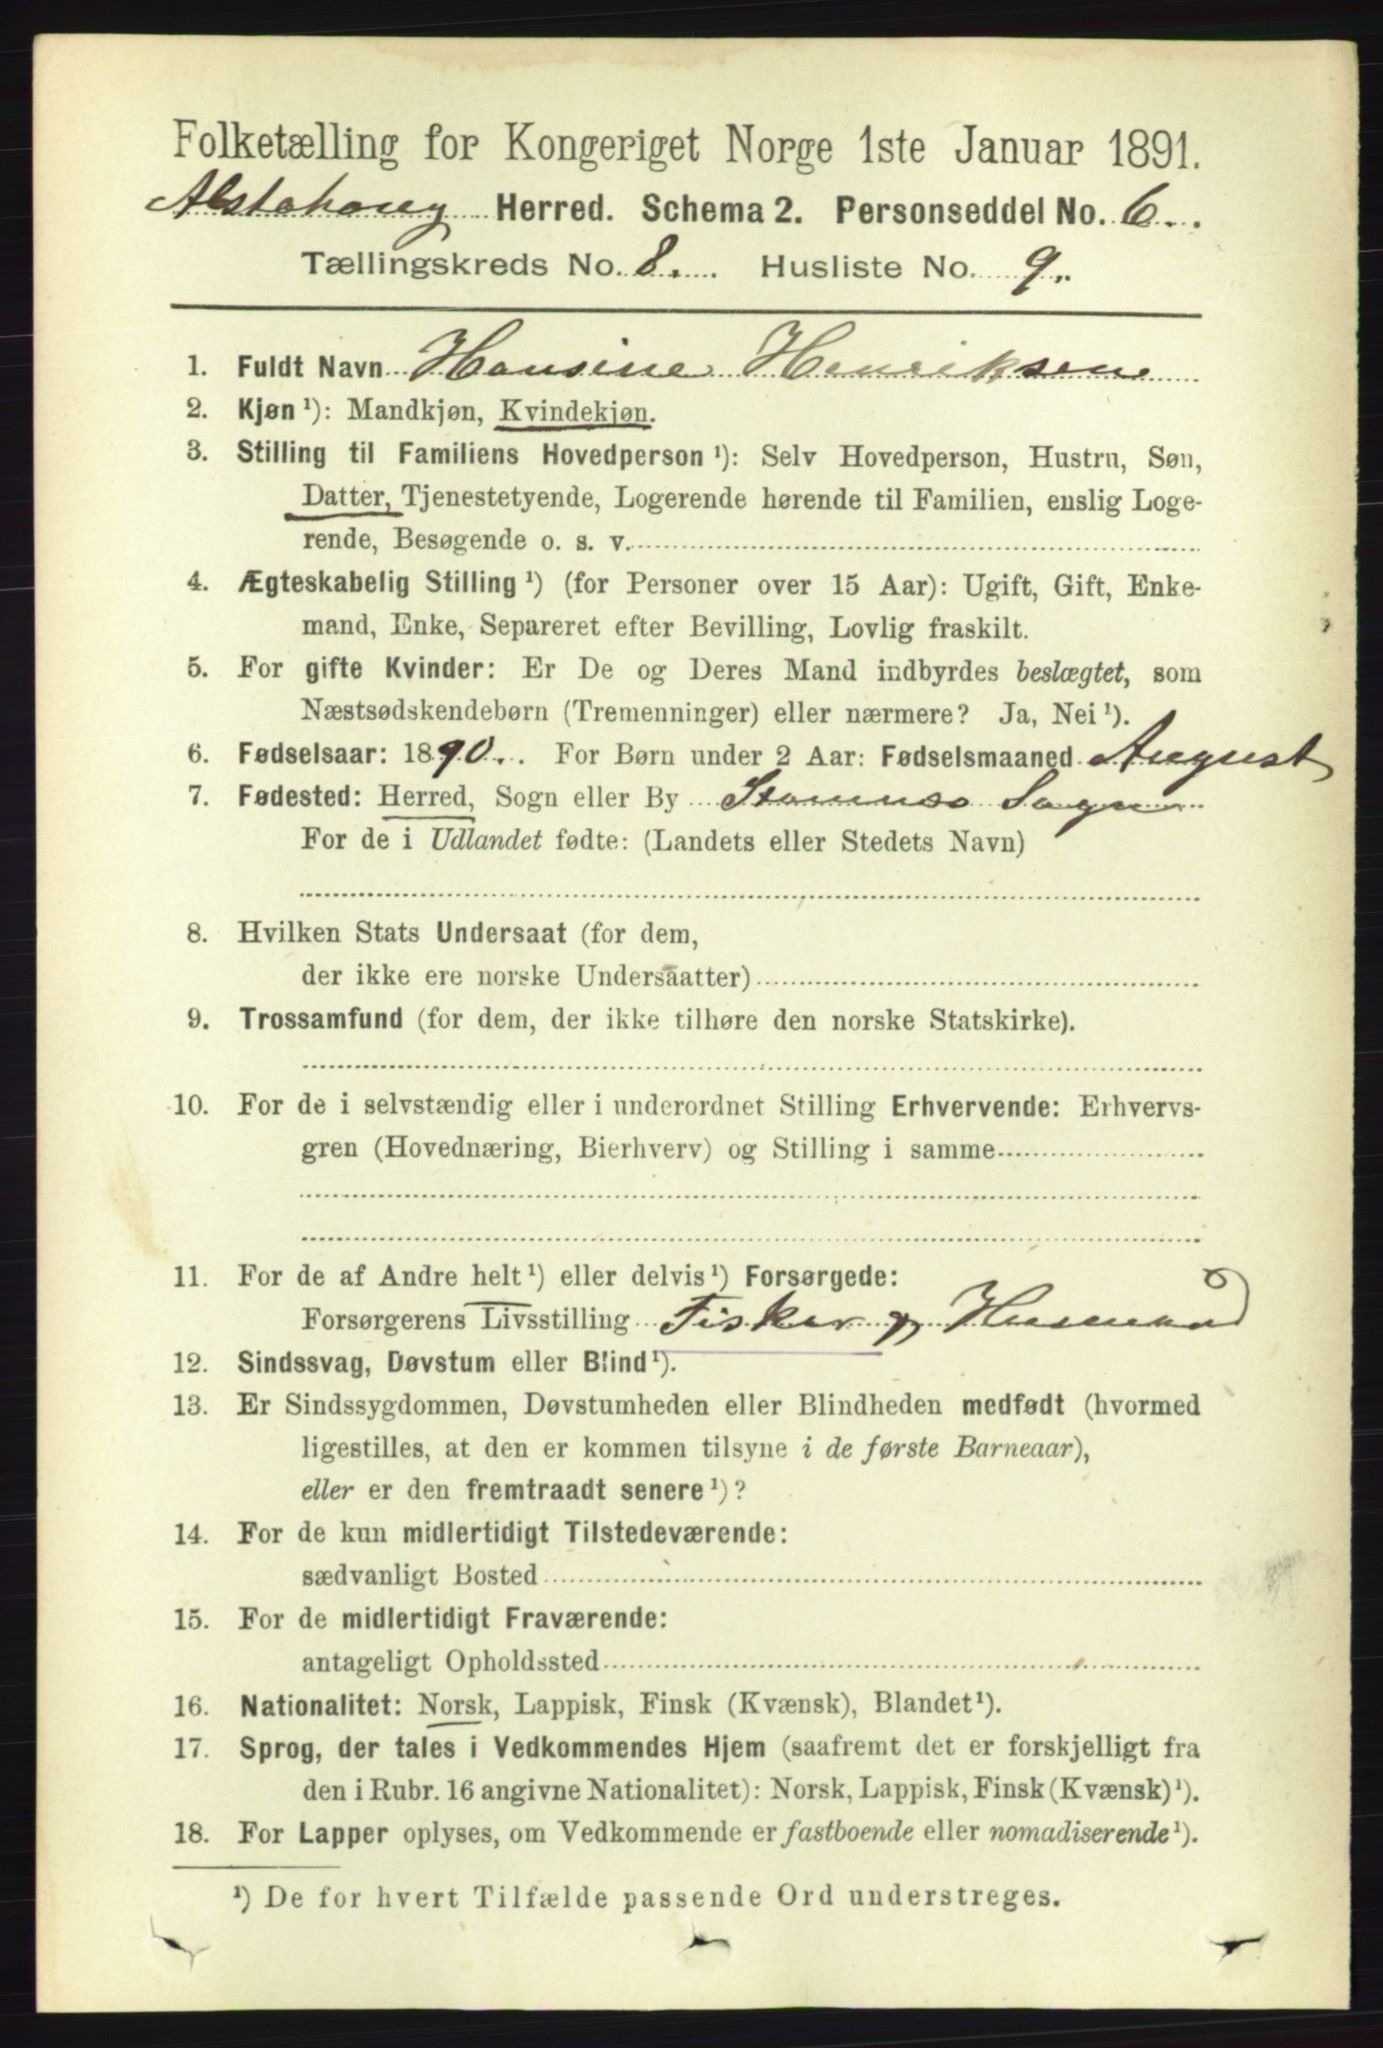 Folketælling for Kongeriget Norge 1ste Januar 1891.
Alstahoug Herred. Schema 2. Personseddel No. 6.
Tællingskreds No. 8. Husliste No. 9.
1. Fuldt Navn Hansine Henriksen
2. Kjøn ¹): Mandkjøn, Kvindekjøn.
3. Stilling til Familiens Hovedperson ¹): Selv Hovedperson, Hustru, Søn,
Datter, Tjenestetyende, Logerende hørende til Familien, enslig Loge-
rende, Besøgende o. s. v.
4. Ægteskabelig Stilling ¹) (for Personer over 15 Aar): Ugift, Gift, Enke-
mand, Enke, Separeret efter Bevilling, Lovlig fraskilt.
5. For gifte Kvinder: Er De og Deres Mand indbyrdes beslægtet, som
Næstsødskendebørn (Tremenninger) eller nærmere? Ja, Nei ¹).
6. Fødselsaar: 1890. For Børn under 2 Aar: Fødselsmaaned August
7. Fødested: Herred, Sogn eller By Stamnes Sogn
For de i Udlandet fødte: (Landets eller Stedets Navn)
8. Hvilken Stats Undersaat (for dem,
der ikke ere norske Undersaatter)
9. Trossamfund (for dem, der ikke tilhøre den norske Statskirke).
10. For de i selvstændig eller i underordnet Stilling Erhvervende: Erhvervs-
gren (Hovednæring, Bierhverv) og Stilling i samme
11. For de af Andre helt ¹) eller delvis ¹) Forsørgede:
Forsørgerens Livsstilling Fisker og Husmand
12. Sindssvag, Døvstum eller Blind ¹).
13. Er Sindssygdommen, Døvstumheden eller Blindheden medfødt (hvormed
ligestilles, at den er kommen tilsyne i de første Barneaar),
eller er den fremtraadt senere ¹)?
14. For de kun midlertidigt Tilstedeværende:
sædvanligt Bosted
15. For de midlertidigt Fraværende:
antageligt Opholdssted
16. Nationalitet: Norsk, Lappisk, Finsk (Kvænsk), Blandet ¹).
17. Sprog, der tales i Vedkommendes Hjem (saafremt det er forskjelligt fra
den i Rubr. 16 angivne Nationalitet): Norsk, Lappisk, Finsk (Kvænsk) ¹).
18. For Lapper oplyses, om Vedkommende er fastboende eller nomadiserende ¹).
¹) De for hvert Tilfælde passende Ord understreges.